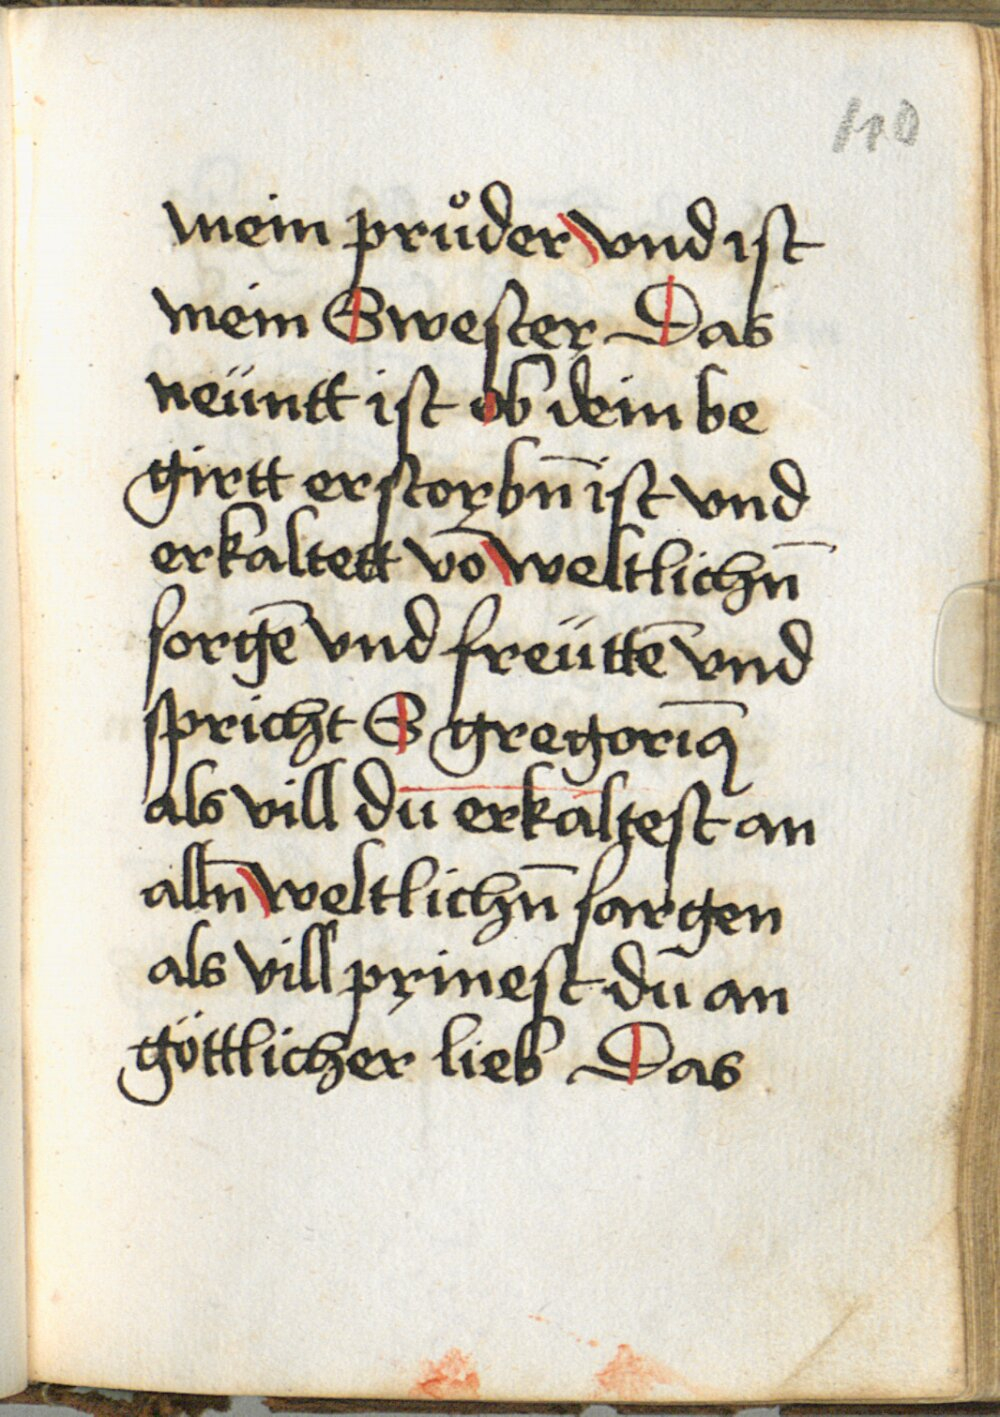 110
mein průder vnd ist
mein Swester Das
neüntt ist ob dein be
girtt erstorbn̄ ist vnd
erkaltett vō weltlichn̄
sorgē vnd freüttē vnd
spricht S gregoriꝰ
als vill dū erkaltest an
alln̄ weltlichn̄ sargen
als vill prinest dū an
göttlicher lieb Das